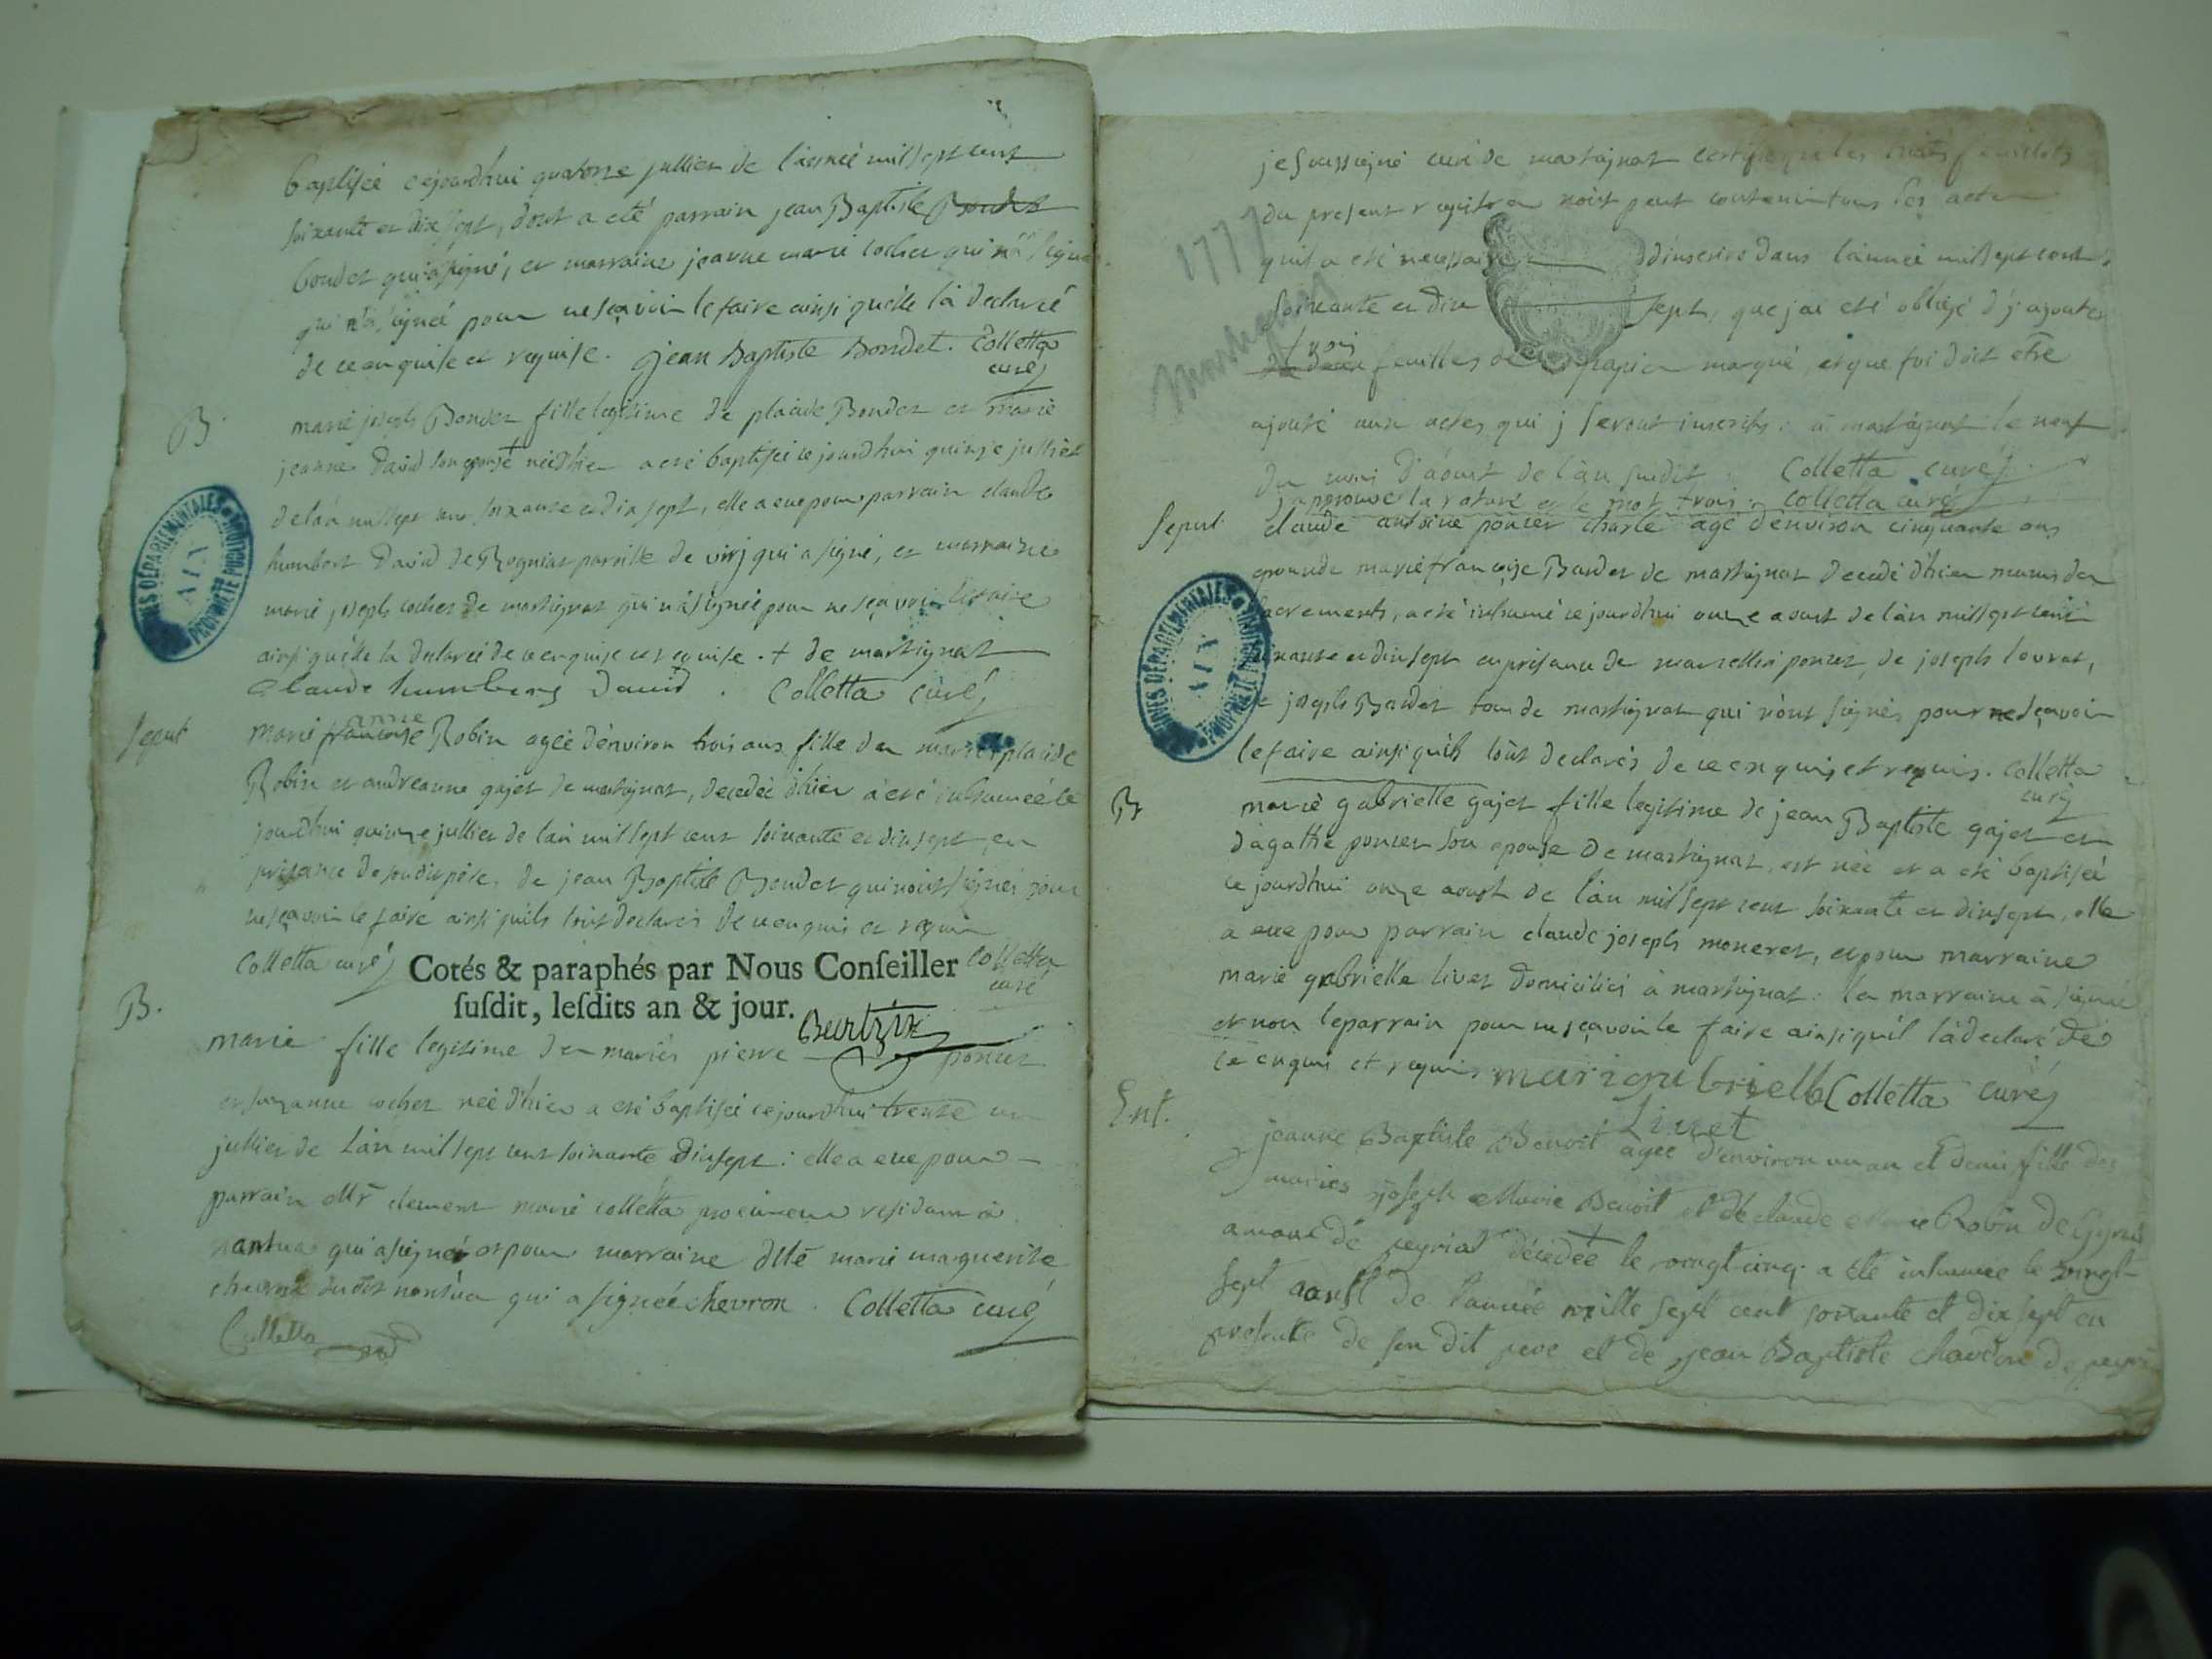 baptisée cejourdhui quatorze jullier de l'année mil sept cent
soixante et dix sept, dont a eté parrain jean Baptiste Bondet
bondet qui a signé, et marraine jeanne marie cochet qui n'a signé
qui n'a signeé pour ne sçavoir le faire ainsi quelle la declareé
de ce enquise et requise. jean Baptiste Bondet. Colletta
curé
B.
marie joseph Bondet fille legitime de placide Bondet et marie
jeanne David son epouse + neé d'hier a eté baptiseé ce jourdhui quinze jullier
de l'an mil sept cent soixante et dix sept, elle a eue pour parrain claude
humbert David de Rogniat parroisse de virj qui a signé, et marraine
marie joseph cochet de martignat qui n'a signeé pour ne sçavoir le faire
ainsi quelle la declareé de ce enquise et requise. + de martignat
Claude humbert david. Colletta curé
Sepult
marie francoise anne Robin ageé d'environ trois ans fille de placide
Robin et andreanne gajet de martignat, decedeé d'hier a eté inhumeé ce
jourdhui quinze jullier de l'an mil sept cent soixante et dix sept en
presence de sondit pere, de jean Baptiste Bondet qui n'ont signés pour
ne sçavoir le faire ainsi quils l'ont declarés de ce enquis et requis
Colletta curé
Colletta
curé
Cotés & paraphés par Nous Conſeiller
ſuſdit, leſdits an & jour.
B.
marie fille legitime des mariés pierre poncet
et suzanne cochet neé d'hier a eté baptiseé ce jourdhui trente un
jullier de l'an mil sept cent soixante dix sept : elle a eue pour
parrain Mr clement marie colletta procureur residant à
nantua qui a signé et pour marraine dlle marie marguerite
chevron dudit nantua qui a signeé chevron. Colletta curé
Colletta
1777
martignat
je soussigné curé de martignat certifie que les huit feuillets
du present registre n'ont peut contenir tous les actes
quil a eté necessaire d'inscrire dans l'anneé mil sept cent
soixante et dix sept, que jai eté obligé d'j ajouter
trois
de deux feuilles de papier marqué, et que foi doit etre
ajouté aux actes qui j seront inscrits. à martignat le neuf
du mois d'aoust de l'an susdit. Colletta curé
j'approuve la rature et le mot trois. colletta curé
Sepult
claude antoine poncet charle agé d'environ cinquante ans
epoux de marie françoise Bardet de martignat decedé d'hier munis des
sacrements, a eté inhumé ce jourdhui onze aoust de l'an mil sept cent
soixante et dix sept en presence de marcellin poncet, de joseph louvat,
et joseph Bardet tous de martignat qui n'ont signés pour ne sçavoir
le faire ainsi quils l'ont declarés de ce enquis et requis. Colletta
curé
B
marie gabrielle gajet fille legitime de jean Baptiste gajet et
d'agathe poncet son epouse de martignat, est neé et a eté baptiseé
ce jourdhui onze aoust de l'an mil sept cent soixante et dix sept, elle
a eue pour parrain claude joseph moneret, et pour marraine
marie gabrielle livet domiciliés à martignat : la marraine a signeé
et non le parrain pour ne sçavoir le faire ainsi quil l'a declaré de
ce enquis et requis. mari gabrielle Colletta curé
Livet
Ent.
jeanne Baptiste Benoit ageé d'environ un an et demi fille des
mariés joseph Marie Benoit et de claude Marie Robin de
amoue de peyriat + décedée le vingt cinq a été inhumeé le vingt
sept aoust de l'année mille sept cent soixante et dix sept en
presence de son dit pere et de jean Baptiste chavelon de